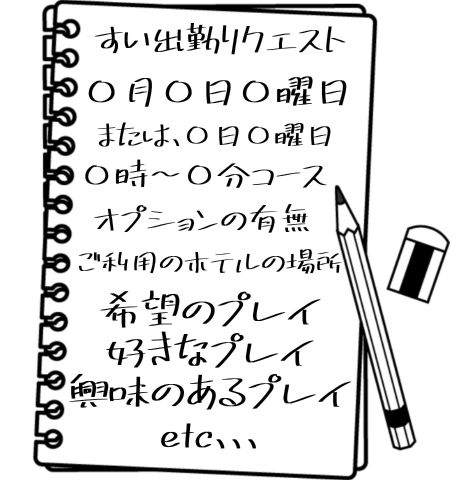 すい出勤リクエスト
〇月〇日〇曜日
または、〇日〇曜日
〇時〜〇分コース
オプションの有無
ご利用のホテルの場所
希望のプレイ
好きなプレイ
興味のあるプレイ
etc、、、